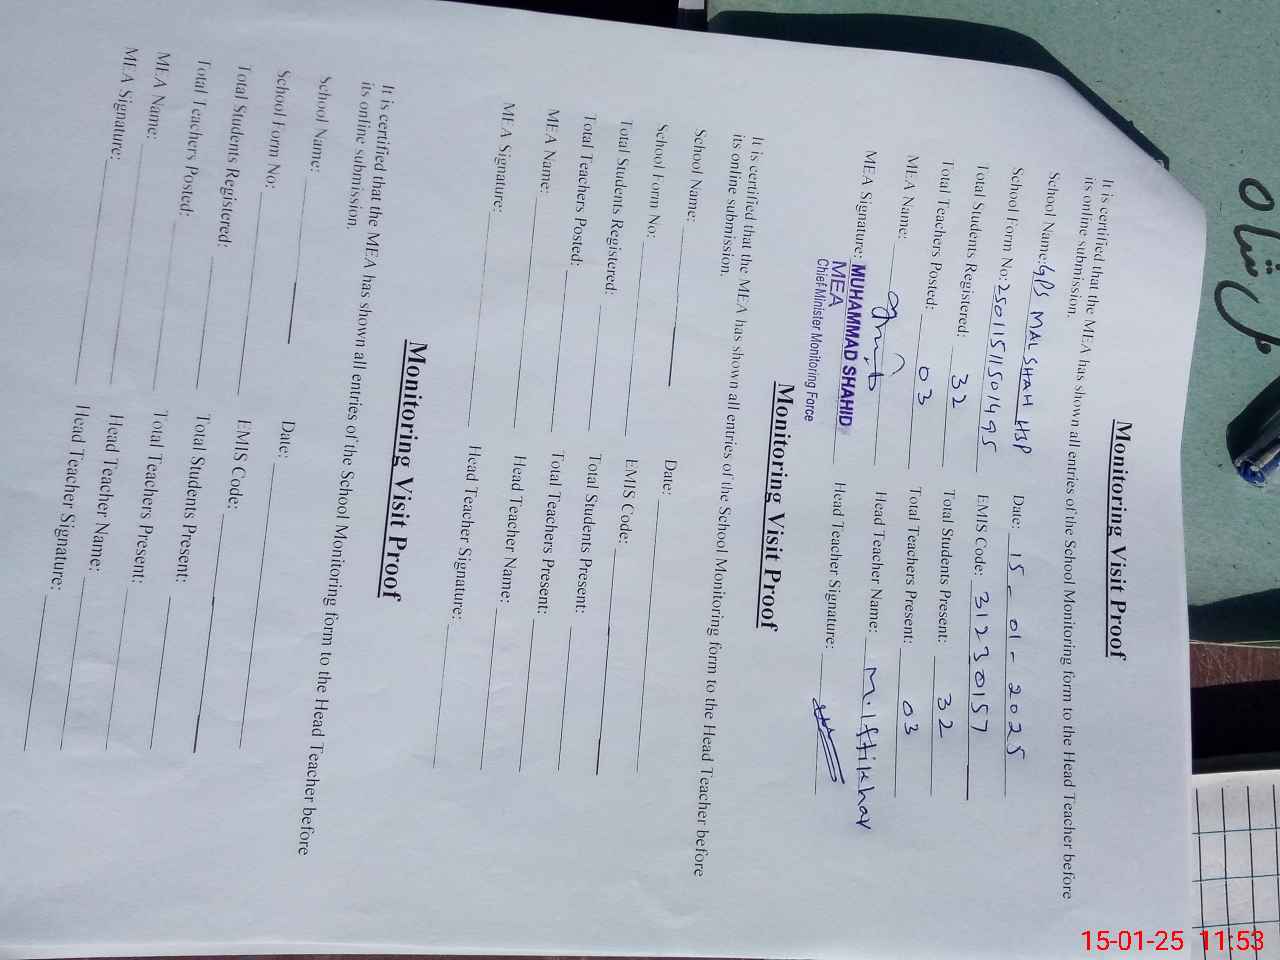 Monitoring Visit Proof
It is certified that the MEA has shown all entries of the School Monitoring form to the Head Teacher before
its online submission.
School Name: GPS MAL SHAH HSP Date: 15-01-2025
School Form No: 25011511501495 EMIS Code: 31230157
Total Students Registered: 32 Total Students Present: 32
Total Teachers Posted: 03 Total Teachers Present: 03
MEA Name: Head Teacher Name: M. Iftikhar
MEA Signature: Head Teacher Signature:
MUHAMMAD SHAHID
MEA
Chief Minister Monitoring Force
Monitoring Visit Proof
It is certified that the MEA has shown all entries of the School Monitoring form to the Head Teacher before
its online submission.
School Name: Date:
School Form No: EMIS Code:
Total Students Registered: Total Students Present:
Total Teachers Posted: Total Teachers Present:
MEA Name: Head Teacher Name:
MEA Signature: Head Teacher Signature:
Monitoring Visit Proof
It is certified that the MEA has shown all entries of the School Monitoring form to the Head Teacher before
its online submission.
School Name: Date:
School Form No: EMIS Code:
Total Students Registered: Total Students Present:
Total Teachers Posted: Total Teachers Present:
MEA Name: Head Teacher Name:
MEA Signature: Head Teacher Signature:
15-01-25 11:53